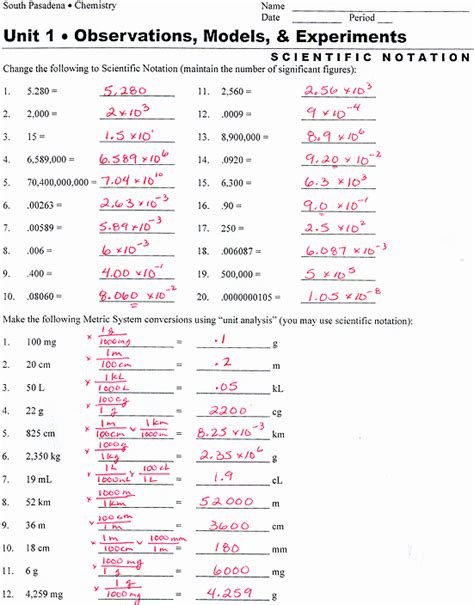 South Pasadena • Chemistry Name
Date Period
Unit 1 • Observations, Models, & Experiments
SCIENTIFIC NOTATION
Change the following to Scientific Notation (maintain the number of significant figures):
1. 5.280 = 5.280 11. 2,560 = 2.56 x 10³
2. 2,000 = 2 x 10³ 12. .0009 = 9 x 10⁻⁴
3. 15 = 1.5 x 10¹ 13. 8,900,000 = 8.9 x 10⁶
4. 6,589,000 = 6.589 x 10⁶ 14. .0920 = 9.20 x 10⁻²
5. 70,400,000,000 = 7.04 x 10¹⁰ 15. 6,300 = 6.3 x 10³
6. .00263 = 2.63 x 10⁻³ 16. .90 = 9.0 x 10⁻¹
7. .00589 = 5.89 x 10⁻³ 17. 250 = 2.5 x 10²
8. .006 = 6 x 10⁻³ 18. .006087 = 6.087 x 10⁻³
9. .400 = 4.00 x 10⁻¹ 19. 500,000 = 5 x 10⁵
10. .08060 = 8.060 x 10⁻² 20. .0000000105 = 1.05 x 10⁻⁸
Make the following Metric System conversions using "unit analysis" (you may use scientific notation):
1. 100 mg x 1g/1000mg = .1 g
2. 20 cm x 1m/100cm = .2 m
3. 50 L x 1kL/1000L = .05 kL
4. 22 g x 100cg/1g = 2200 cg
5. 825 cm x 1m/100cm x 1km/1000m = 8.25 x 10⁻³ km
6. 2,350 kg x 1000g/1kg = 2.35 x 10⁶ g
7. 19 mL x 1L/1000mL x 100cL/1L = 1.9 cL
8. 52 km x 1000m/1km = 52000 m
9. 36 m x 100cm/1m = 3600 cm
10. 18 cm x 1m/100cm x 1000mm/1m = 180 mm
11. 6 g x 1000mg/1g = 6000 mg
12. 4,259 mg x 1g/1000mg = 4.259 g